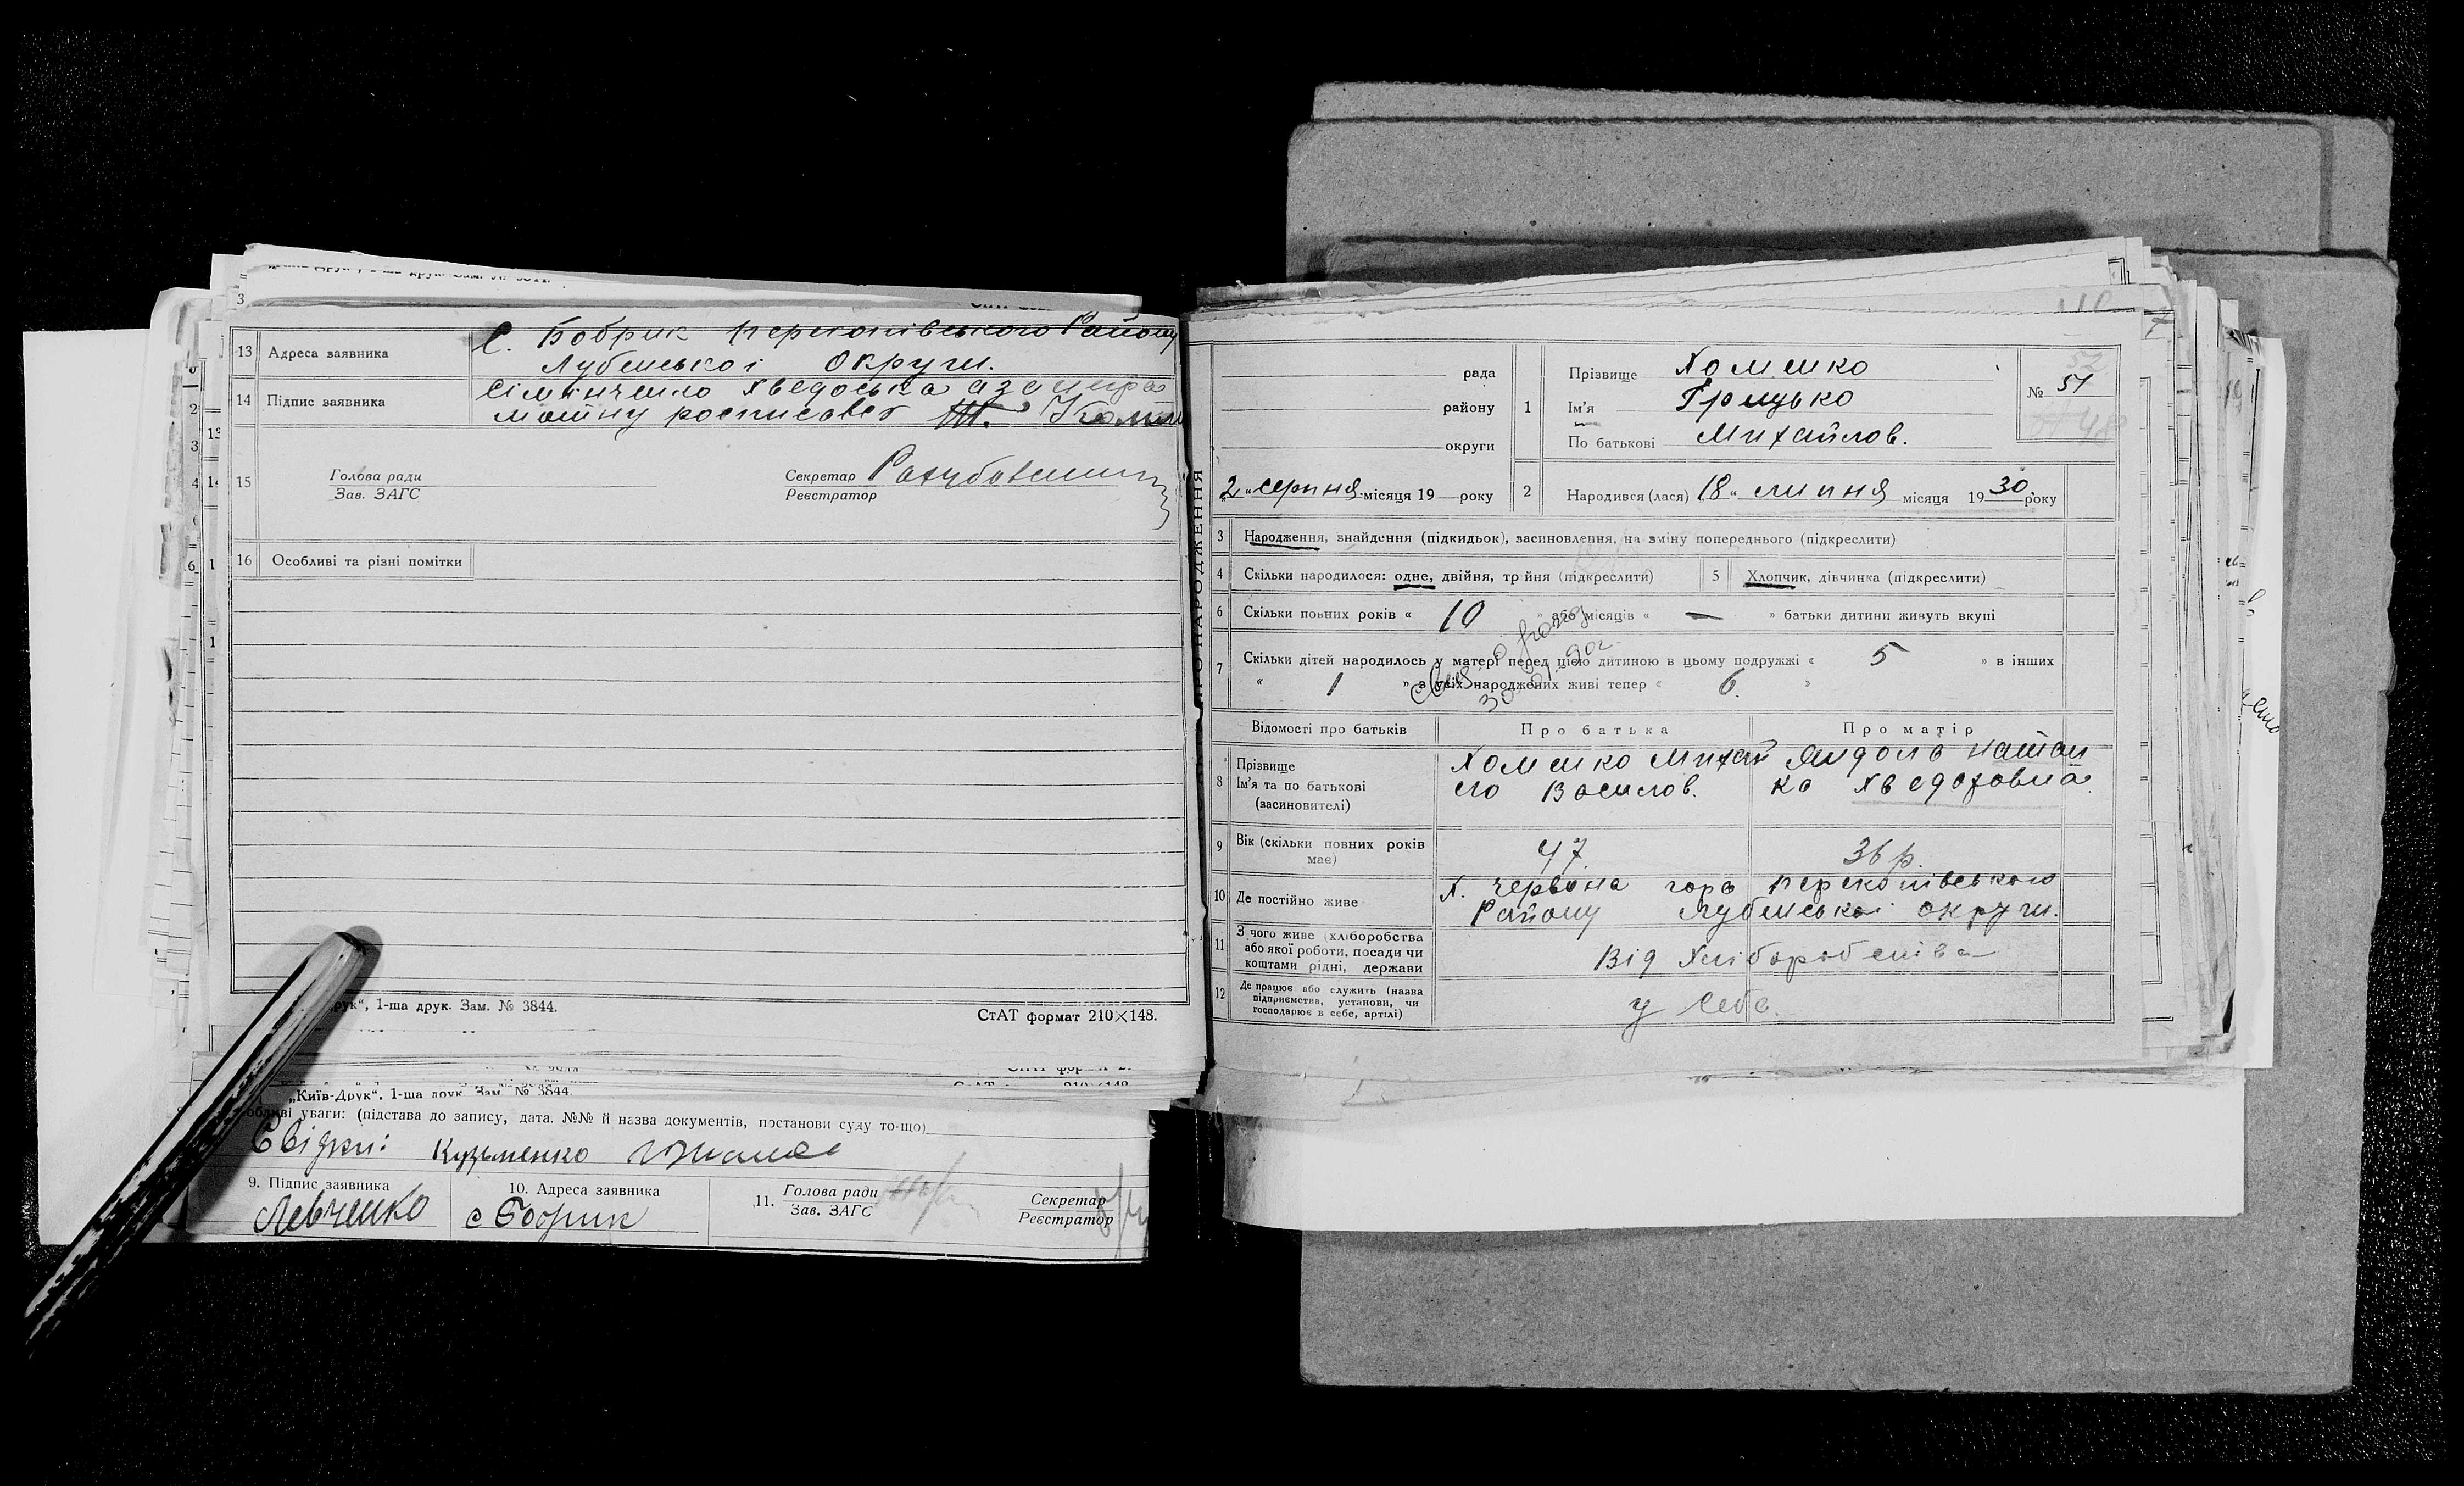 13 Адреса заявника С. Бобрик Перекопівського Району
Лубенської Округи.
14 Підпис заявника Сімінченко Хведоська а за негра
мотну росписавсь
15 Голова ради
Зав. ЗАГС
Секретар
Реєстратор
16 Особливі та різні помітки
рук“, 1-ша друк. Зам. № 3844.
СтАТ формат 210×148.
„Київ-Друк“, 1-ша друк. Зам. № 3844.
обливі уваги: (підстава до запису, дата. №№ й назва документів, постанови суду то-що)
Свідки: Кузьменко
9. Підпис заявника
Левченко
10. Адреса заявника
с Бобрик
11. Голова ради
Зав. ЗАГС
Секретар
Реєстратор
рада
району
округи
2„ серпня місяця 19 року
1 Прізвище Хоменко
Ім’я Грицько
По батькові Михайлов.
№ 51
2 Народився (лася) 18„ липня місяця 1930 року
3 Народження, знайдення (підкидьок), засиновлення, на зміну попереднього (підкреслити)
4 Скільки народилося: одне, двійня, трійня (підкреслити) 5 Хлопчик, дівчинка (підкреслити)
6 Скільки повних років « 10 » або місяців « — » батьки дитини живуть вкупі
7 Скільки дітей народилось у матері перед цією дитиною в цьому подружжі « 5 » в інших
« 1 » з усіх народжених живі тепер « 6. »
Відомості про батьків Про батька Про матір
8 Прізвище
Ім’я та по батькові
(засновителі)
Хоменко Михай
ло Василов.
Хведоровна
9 Вік (скільки повних років
має)
47. 36 р.
10 Де постійно живе Х. Червона гора Перекопівського
Району Лубенської округи.
11 З чого живе (хліборобства
або якої роботи, посади чи
коштами рідні, держави
Від Хліборобства
12 Де працює або служить (назва
підприємства, установи, чи
господарює в себе, артілі)
у себе.